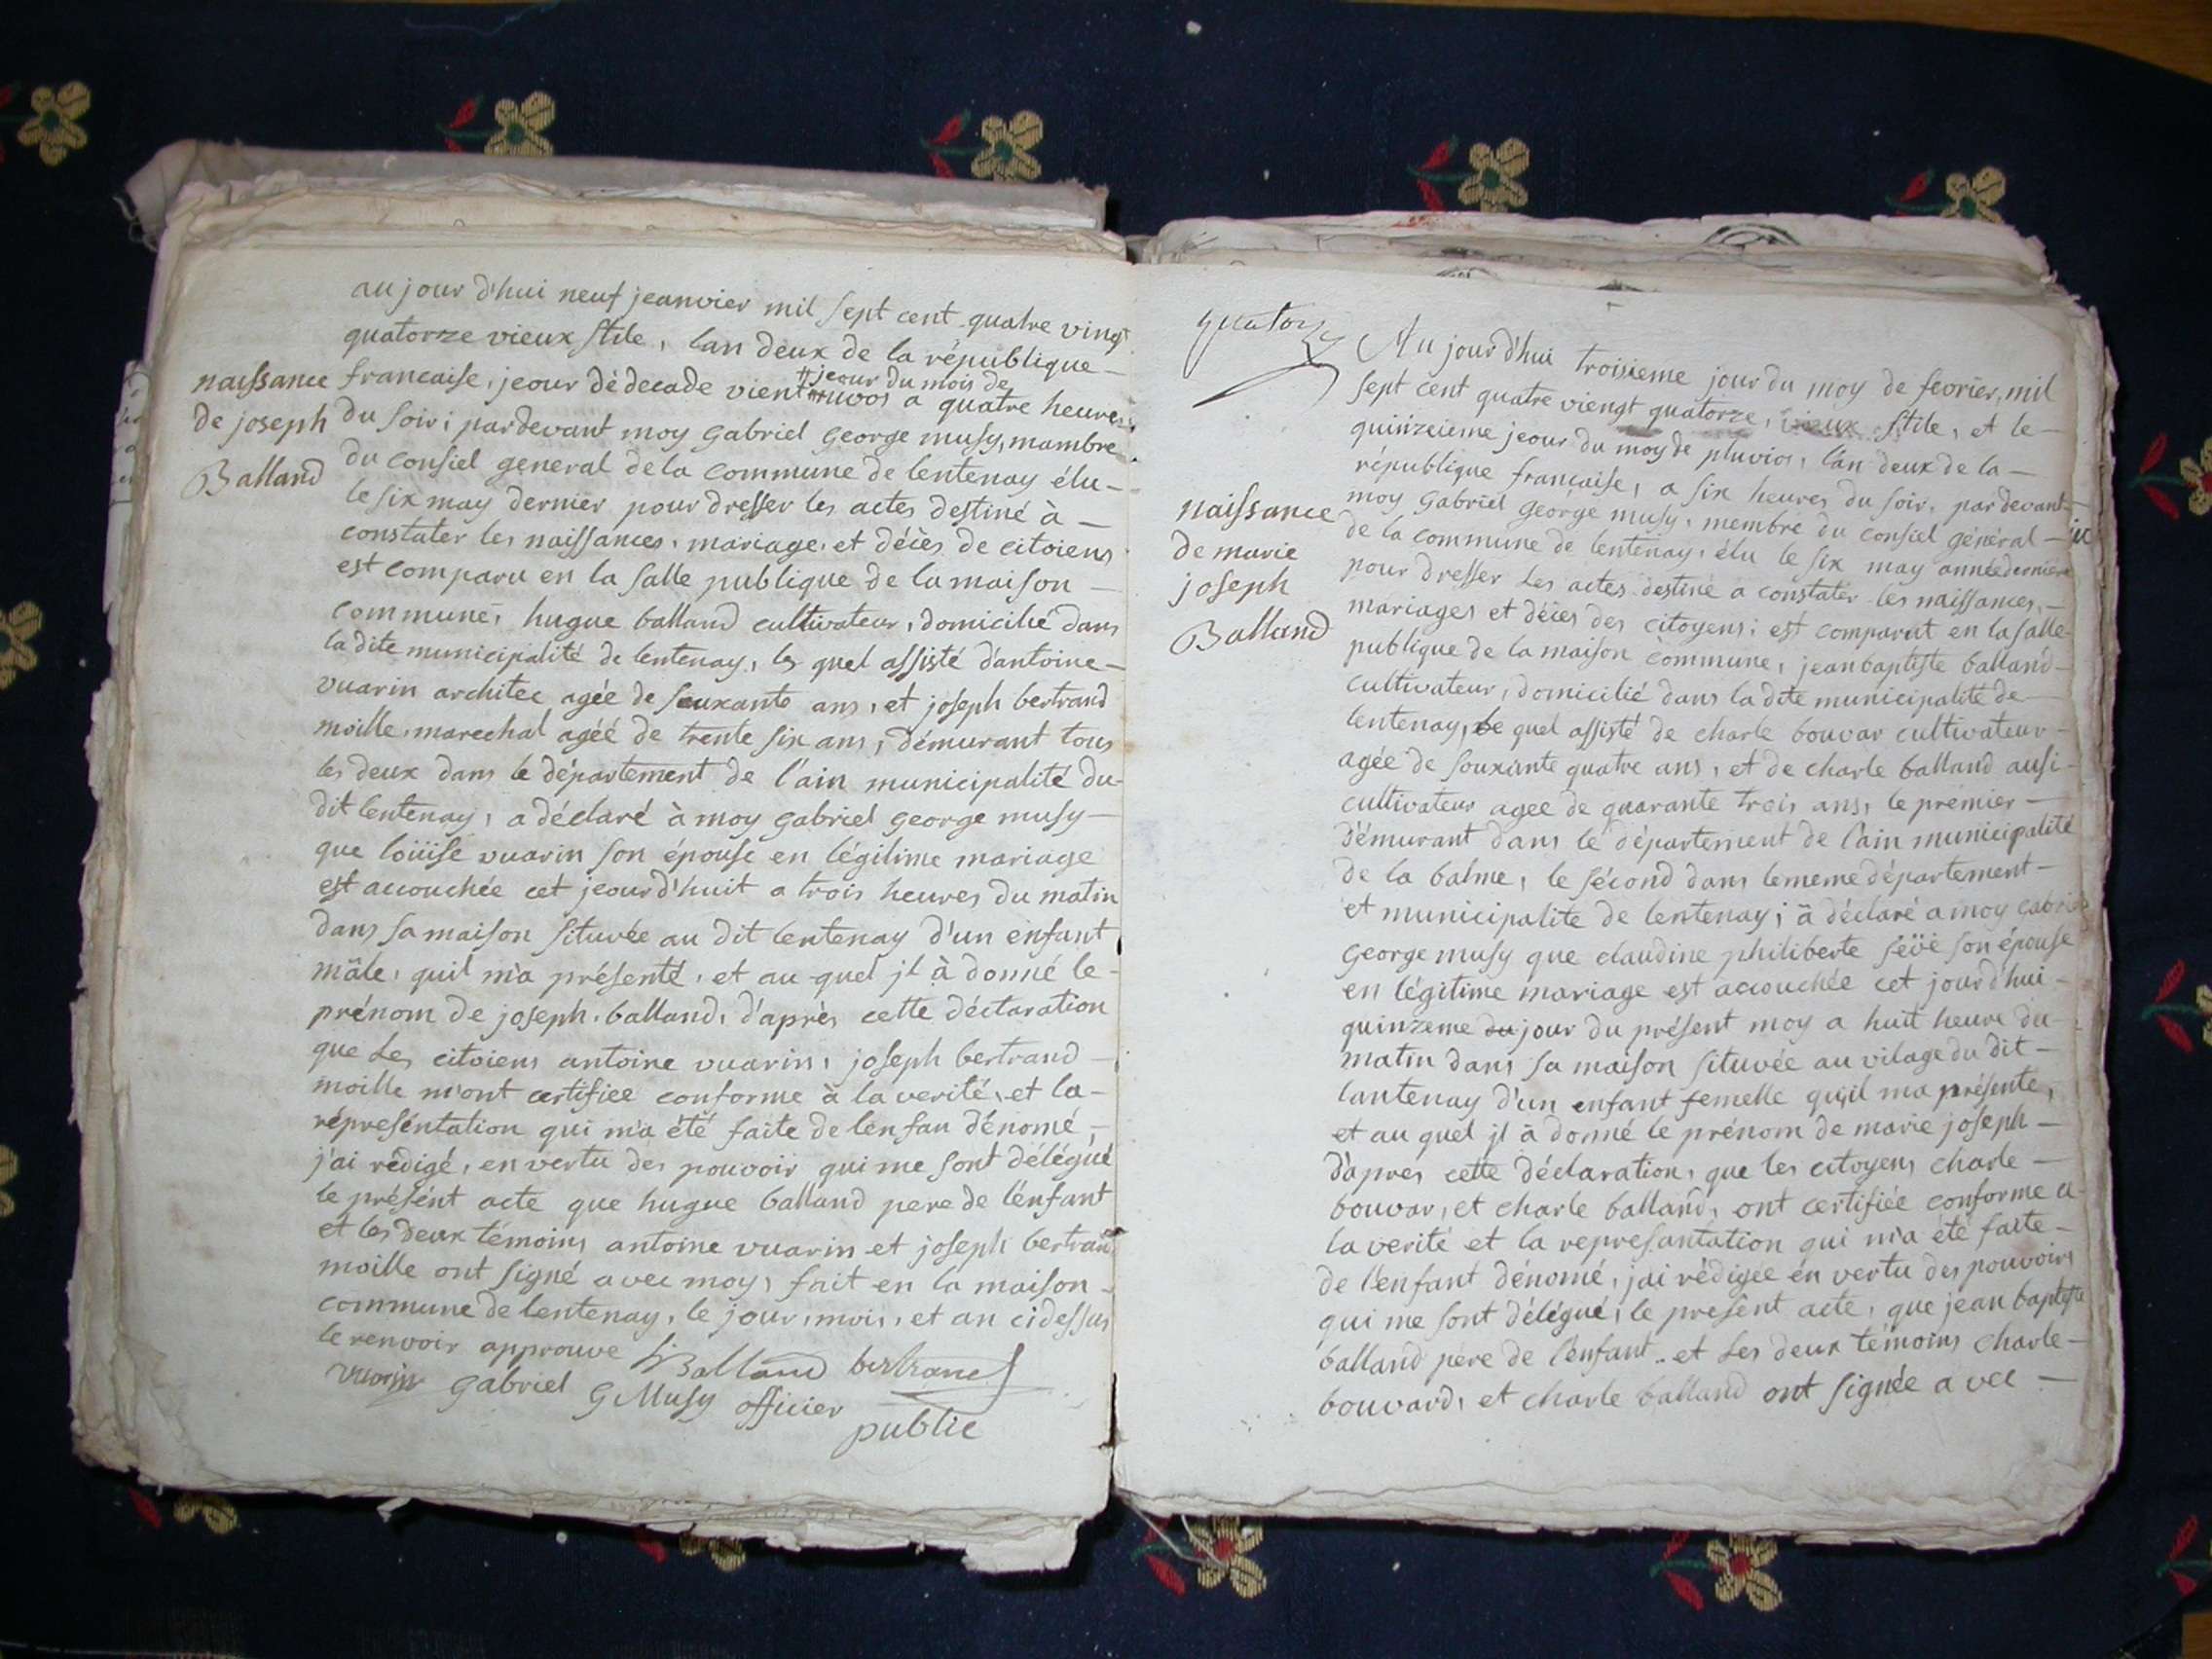 au jour d'hui neuf jeanvier mil sept cent quatre vingt
quatorze vieux stile, lan deux de la république —
naissance
de joseph
Balland
francaise, jeour dé decade vient nivos a quatre heures
jeour du mois de
du soir; pardevant moy Gabriel George musy, mambre
du consiel general de la commune de lentenay élu —
le six may dernier pour dresser les actes destiné à —
constater les naissances, mariage, et décès de citoiens
est comparu en la salle publique de la maison —
commune, hugue balland cultivateur, domicilié dans
la dite municipalité de lentenay, le quel assisté d'antoine —
vuarin architec agée de souxante ans, et joseph bertrand
moille, marechal agéé de trente six ans, démurant tous
les deux dans le département de l'ain municipalité du-
dit lentenay, a déclaré à moy gabriel george musy —
que loüise vuarin son épouse en légitime mariage
est accouchée cet jeourd'huit a trois heures du matin
dans sa maison situvée au dit lentenay d'un enfant
mâle, quil m'a présenté, et au-quel jl à donné le -
prénom de joseph. balland, d'après cette déclaration
que les citoiens antoine vuarin, joseph bertrand —
moille m'ont certifiee conforme à la verité, et la -
réprésentation qui m'a été faite de lenfan dénomé, -
j'ai rédigé, en vertu des pouvoir qui me sont délégué
le présént acte que hugue balland pere de l'énfant
et les deux témoins antoine vuarin et joseph bertrand
moille ont signé avec moy, fait en la maison -
commune de lentenay, le jour, mois, et an cidessus
le renvoir approuve h Balland bertrand
vuarin Gabriel G Musy officier
public
quatorze
Au jour d'hui troisieme jour du moy de fevrier, mil
sept cent quatre viengt quatorze, vieux stile, et le —
quinzeieme jeour du moy de pluvios, l'an deux de la —
république francaise, a six heures du soir, par devant —
naissance
de marie
joseph
Balland
moy Gabriel george musy, membre du consiel général —
de la commune de lentenay, élu le six may année derniere
pour dresser les actes destiné a constater les naissances, —
mariages et décès des citoyens; est comparut en la salle -
publique de la maison commune, jean baptiste balland —
cultivateur, domicilié dans la dite municipalité de —
lentenay, le quel assisté de charle bouvar cultivateur -
agée de souxante quatre ans, et de charle balland ausi -
cultivateur agee de quarante trois ans, le premier —
démurant dans le département de l'ain municipalité
de la balme, le sécond dans le meme département —
et municipalite de lentenay; à déclaré a moy Gabriel
George musy que claudine philiberte seüe son épouse
en légitime mariage est accouchée cet jour d'hui -
quinzeme du jour du présent moy a huit heure du -
matin dans sa maison situvée au vilage du dit —
lantenay d'un enfant femelle qu'il ma présente,
et au quel jl à donné le prénom de marie joseph —
d'apres cette déclaration, que les citoyens charle —
bouvar, et charle balland, ont certifiée conforme a
la verité et la represantation qui m'a été faite -
de l'enfant dénomé, jai rédigée én vertu des pouvoirs
qui me sont délégué, le présent acte, que jean baptiste
balland pére de l'enfant, et les deux témoins charle —
bouvard, et charle balland ont signée avec —